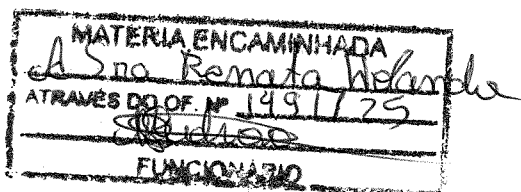 MATERIA ENCAMINHADA
A Sra Renata Holanda
ATRAVÉS DO OF. Nº 1491/25
FUNCIONÁRIO